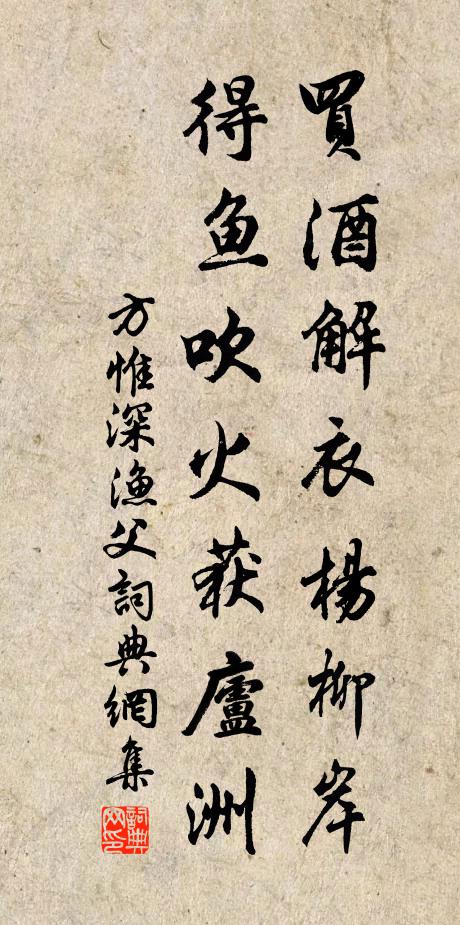 買酒解衣楊柳岸
得魚吹火荻廬洲
方惟深漁父詞典網集
詞典网印